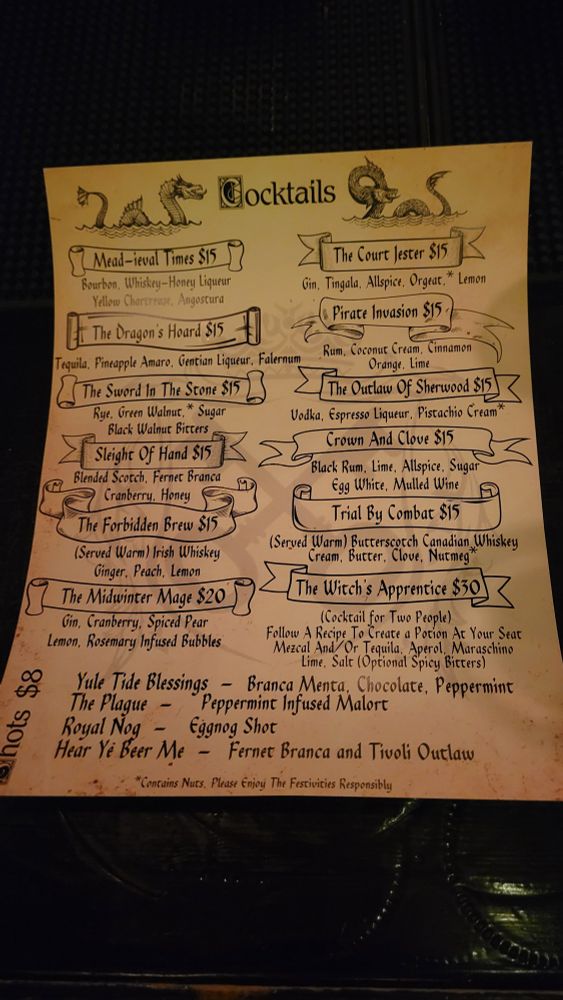 Cocktails
Mead-ieval Times $15
Bourbon, Whiskey-Honey Liqueur
Yellow Chartreuse, Angostura
The Dragon's Hoard $15
Tequila, Pineapple Amaro, Gentian Liqueur, Falernum
The Sword In The Stone $15
Rye, Green Walnut,* Sugar
Black Walnut Bitters
Sleight Of Hand $15
Blended Scotch, Fernet Branca
Cranberry, Honey
The Forbidden Brew $15
(Served Warm) Irish Whiskey
Ginger, Peach, Lemon
The Midwinter Mage $20
Gin, Cranberry, Spiced Pear
Lemon, Rosemary Infused Bubbles
The Court Jester $15
Gin, Tingala, Allspice, Orgeat,* Lemon
Pirate Invasion $15
Rum, Coconut Cream, Cinnamon
Orange, Lime
The Outlaw Of Sherwood $15
Vodka, Espresso Liqueur, Pistachio Cream*
Crown And Clove $15
Black Rum, Lime, Allspice, Sugar
Egg White, Mulled Wine
Trial By Combat $15
(Served Warm) Butterscotch Canadian Whiskey
Cream, Butter, Clove, Nutmeg*
The Witch's Apprentice $30
(Cocktail for Two People)
Follow A Recipe To Create a Potion At Your Seat
Mezcal And/Or Tequila, Aperol, Maraschino
Lime, Salt (Optional Spicy Bitters)
Shots $8
Yule Tide Blessings – Branca Menta, Chocolate, Peppermint
The Plague – Peppermint Infused Malort
Royal Nog – Eggnog Shot
Hear Ye Beer Me – Fernet Branca and Tivoli Outlaw
*Contains Nuts, Please Enjoy The Festivities Responsibly